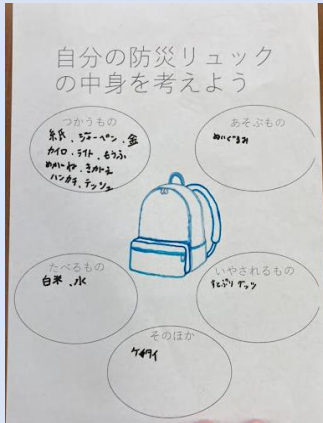 自分の防災リュック
の中身を考えよう
つかうもの
紙、シャーペン、金
カイロ、ライト、もうふ
めがね、きがえ
ハンカチ、テッシュ
あそぶもの
ぬいぐるみ
たべるもの
白米、水
いやされるもの
すとぷりグッツ
そのほか
ケータイ